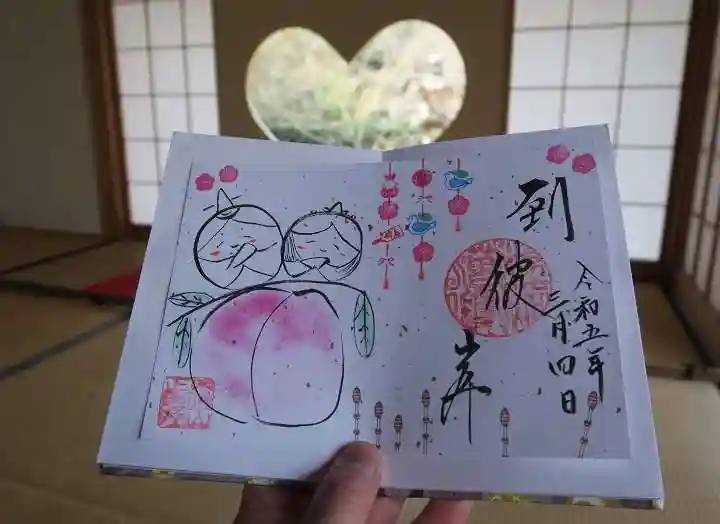 到彼岸
令和五年
三月四日